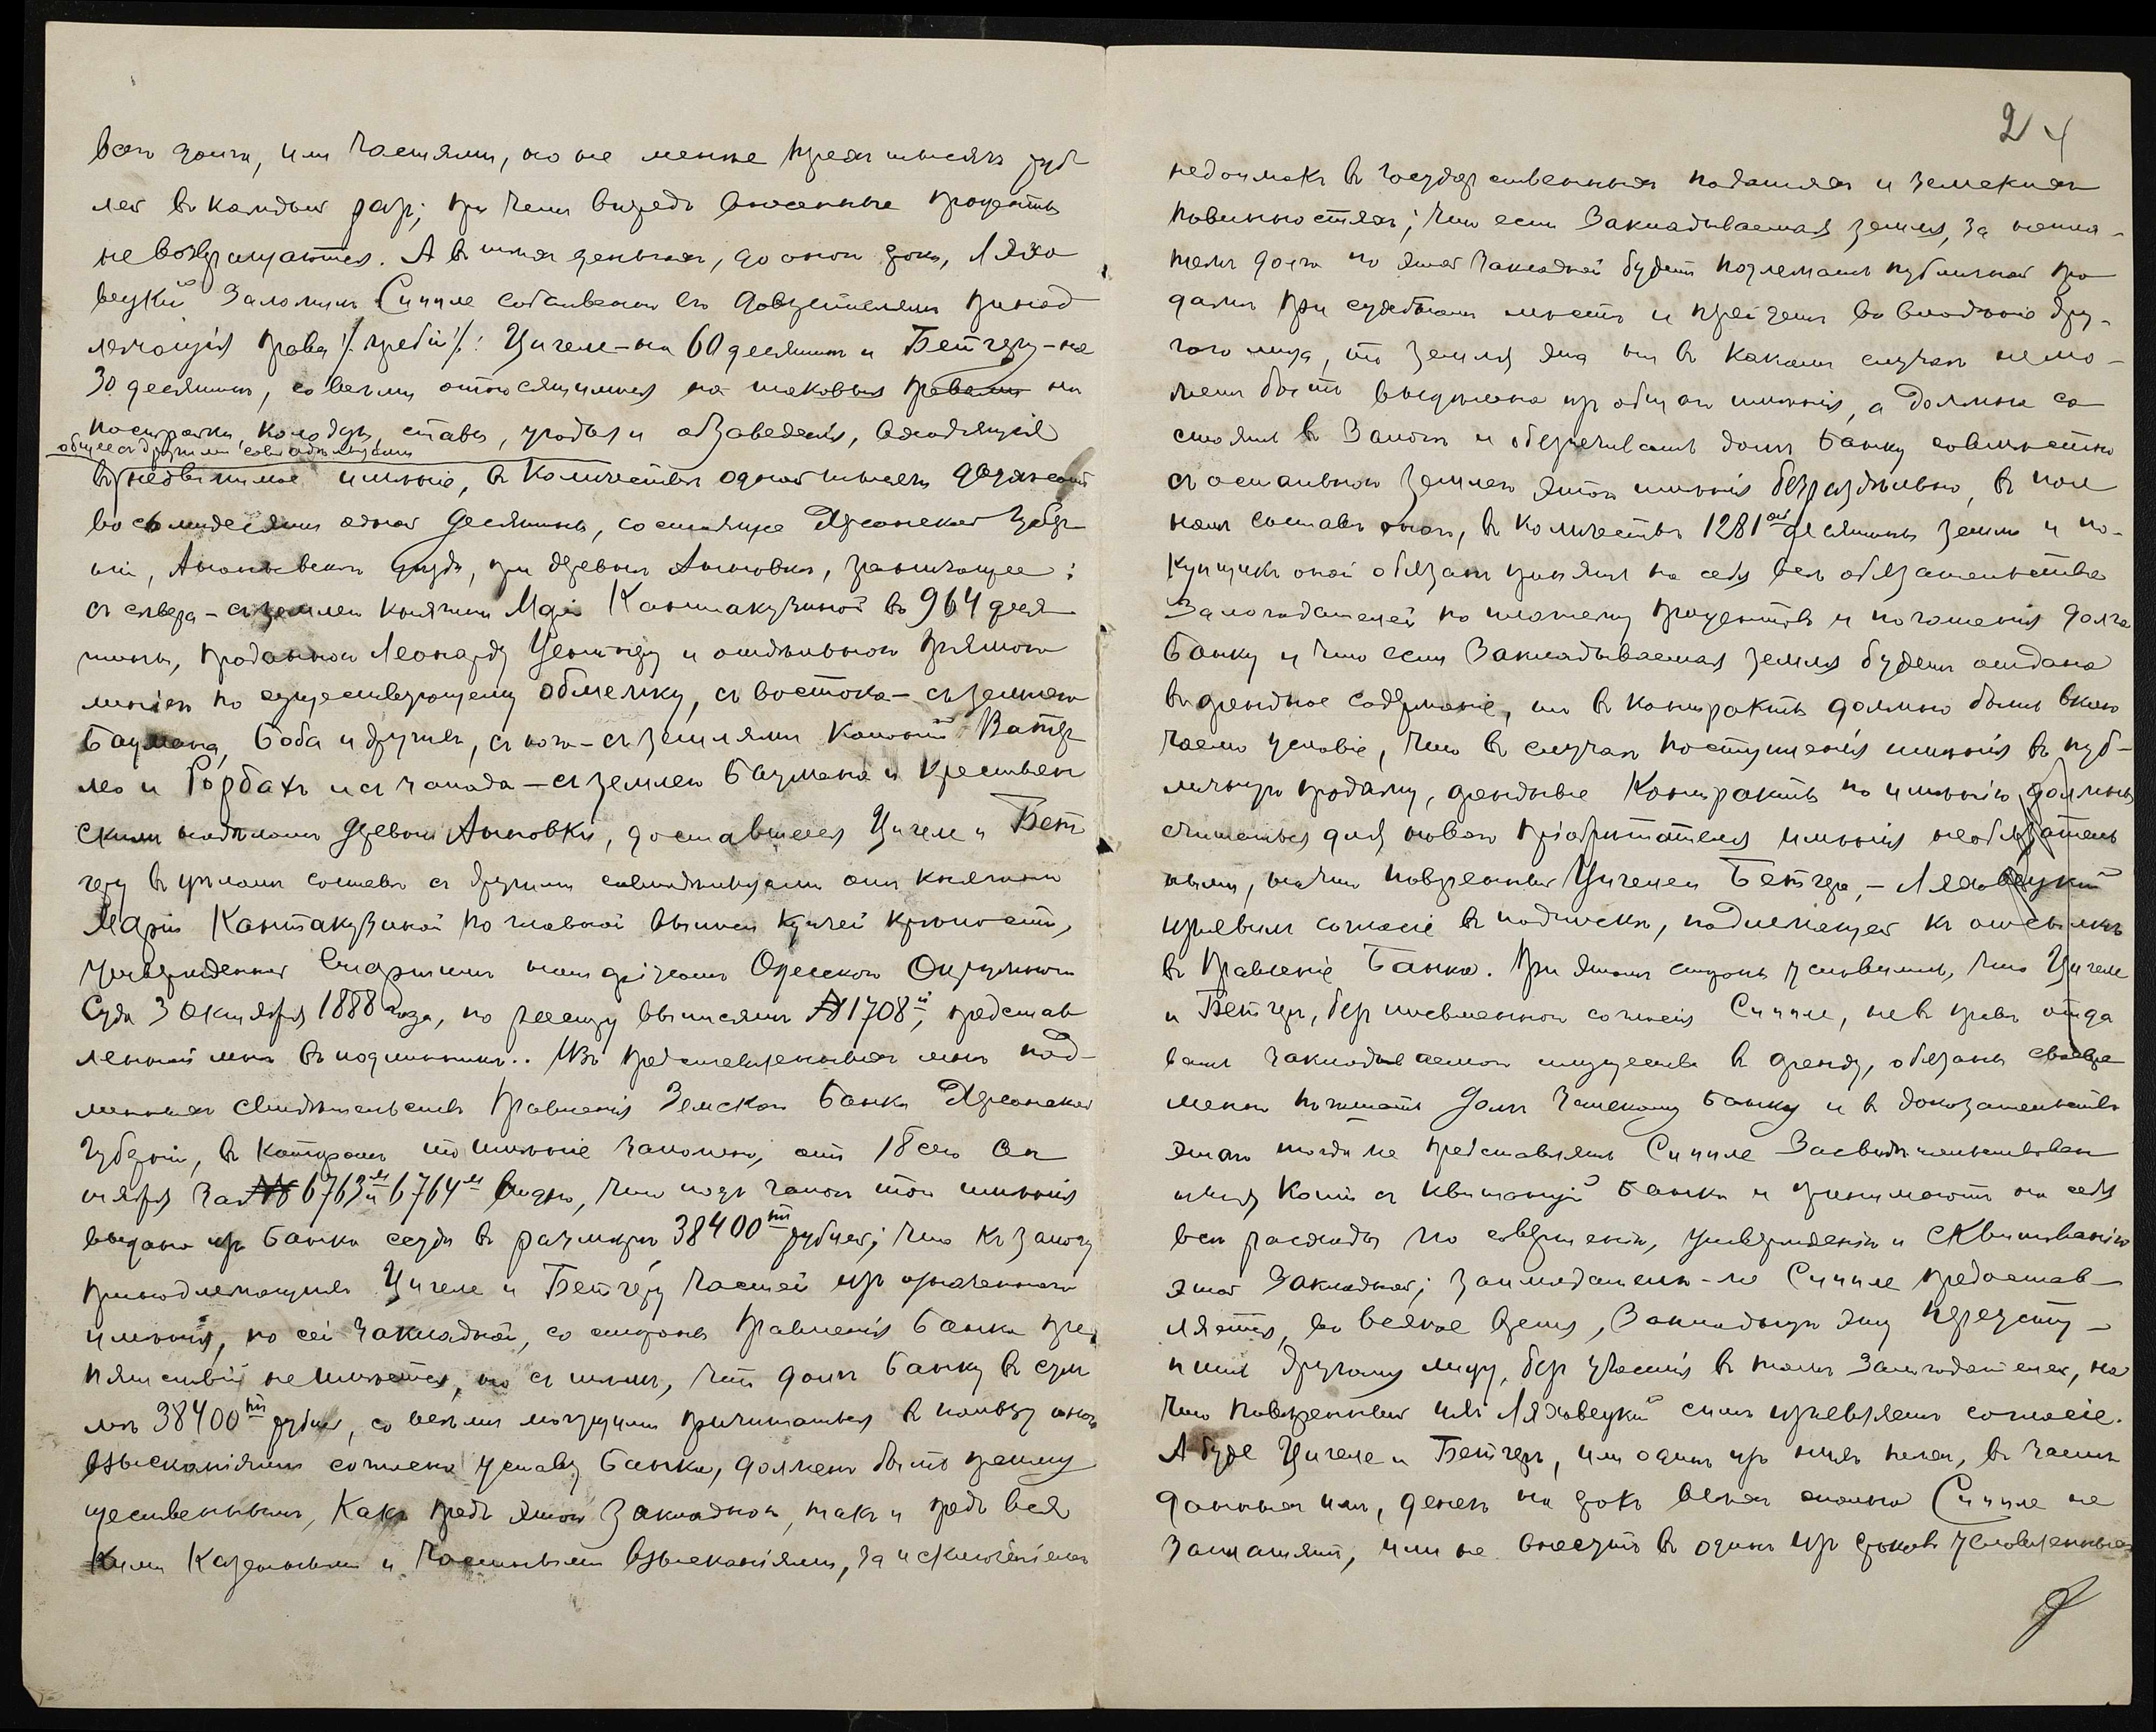 весь долгъ, или частями, но не менѣе трехъ тысячъ руб
лей въ каждый разъ; при чемъ впредь внесенные проценты
не возвращаются. А въ тѣхъ деньгахъ, до оного срока, Ляхо
вецкій заложилъ Синиле собственно его довѣрителямъ принад
лежащія права /. требій /.: Цигеле-на 60 десятинъ и Бетгеру-на
30 десятинъ, со всѣми относящимися на таковыя правами на
постройки, колодцы, ставы, угодья и обзаведенія, входящія
общее съ другими совладѣльцами
въ недвижимое имѣніе, въ количествѣ одной тысячи двѣсти
восьмидесяти одной десятины, состоящее Херсонской губер
ніи, Ананьевскаго уѣзда, при деревнѣ Анновкѣ, граничащее:
съ сѣвера - съ землею княгини Маріи Кантакузиной въ 964 деся
тины, проданной Леонарду Центнеру и отдѣльной прямою
линіею по существующему обмежку, съ востока - съ землею
Баумана, Боба и другихъ, съ юга - съ землями колоній Ватер
ло и Рорбахъ и съ запада - съ землею Баумана и крестьян
скимъ надѣломъ деревни Анновки, доставшееся Цигеле и Бет
геру въ цѣломъ составѣ съ другими совладѣльцами отъ княгини
Маріи Кантакузиной по главной выписи купчей крѣпости,
утвержденной Старшимъ нотаріусомъ Одесскаго Окружнаго
Суда 3 октября 1888 года, по реестру выписямъ № 1708й, представ
ленной мнѣ въ подлинникѣ.. Изъ представленныхъ мнѣ под-
линныхъ свидѣтельствъ Правленія Земскаго Банка Херсонской
губерніи, въ которомъ то имѣніе заложено, отъ 18 сего ок
тября за №№ 6763м и 6764м видно, что подъ залогъ того имѣнія
выдана изъ Банка ссуда въ размѣрѣ 38400тъ рублей; что къ залогу
принадлежащихъ Цигеле и Бетгеру частей изъ означеннаго
имѣнія, по сей закладной, со стороны Правленія Банка пре
пятствій не имѣется, но съ тѣмъ, что долгъ Банку въ сум
мѣ 38400тъ рублей, со всѣми могущими причитаться въ пользу оного
взысканіями согласно уставу Банка, долженъ быть преиму
щественнымъ, какъ предъ этою закладною, такъ и предъ вся
кими казенными и частными взысканіями, за исключеніемъ
24
недоимокъ въ государственныхъ податяхъ и земскихъ
повинностяхъ; что если закладываемая земля, за непла-
тежъ долга по этой закладной будетъ подлежать публичной про
дажѣ при судебномъ мѣстѣ и перейдетъ во владѣніе дру-
гого лица, то земля эта ни въ какомъ случаѣ не мо-
жетъ быть выдѣлена изъ общаго имѣнія, а должна со
стоять въ залогѣ и обезпечивать долгъ Банку совмѣстно
съ остальною землею этого имѣнія безраздѣльно, въ пол
номъ составѣ оного, въ количествѣ 1281ой десятины земли и по-
купщикъ оной обязанъ принять на себя всѣ обязательства
залогодателей по платежу процентовъ и погашенія долга
Банку и что если закладываемая земля будетъ отдана
въ арендное содержаніе, то въ контрактъ должно быть вклю
чаемо условіе, что въ случаѣ поступленія имѣнія въ пуб-
личную продажу, арендные контракты по имѣнію должны
считаться для новаго пріобрѣтателя имѣнія необязатель
ными, на что повѣренный Цигеле и Бетгера, - Ляховецкій
изъявилъ согласіе въ подпискѣ, подлежащей къ отсылкѣ
въ Правленіе Банка. При этомъ стороны условились, что Цигеле
и Бетгеръ, безъ письменнаго согласія Синиле, не въ правѣ отда
вать закладываемаго имущества въ аренду, обязаны своевре
менно погашать долгъ Земскому Банку и въ доказательство
этого тогда же представлять Синиле засвидѣтельствован
ныя копіи съ квитанцій Банка и принимаютъ на себя
всѣ расходы по совершенію, утвержденію и сквитованію
этой закладной; займодателю-же Синиле предостав-
ляется, во всякое время, закладную эту переусту-
пить другому лицу, безъ участія въ томъ залогодателей, на
что повѣренный ихъ Ляховецкій симъ изъявляетъ согласіе.
А буде Цигеле и Бетгеръ, или одинъ изъ нихъ, въ части
данныхъ имъ, денегъ на срокъ всѣхъ сполна Синиле не
заплатятъ, или не внесутъ въ одинъ изъ сроковъ условленныхъ